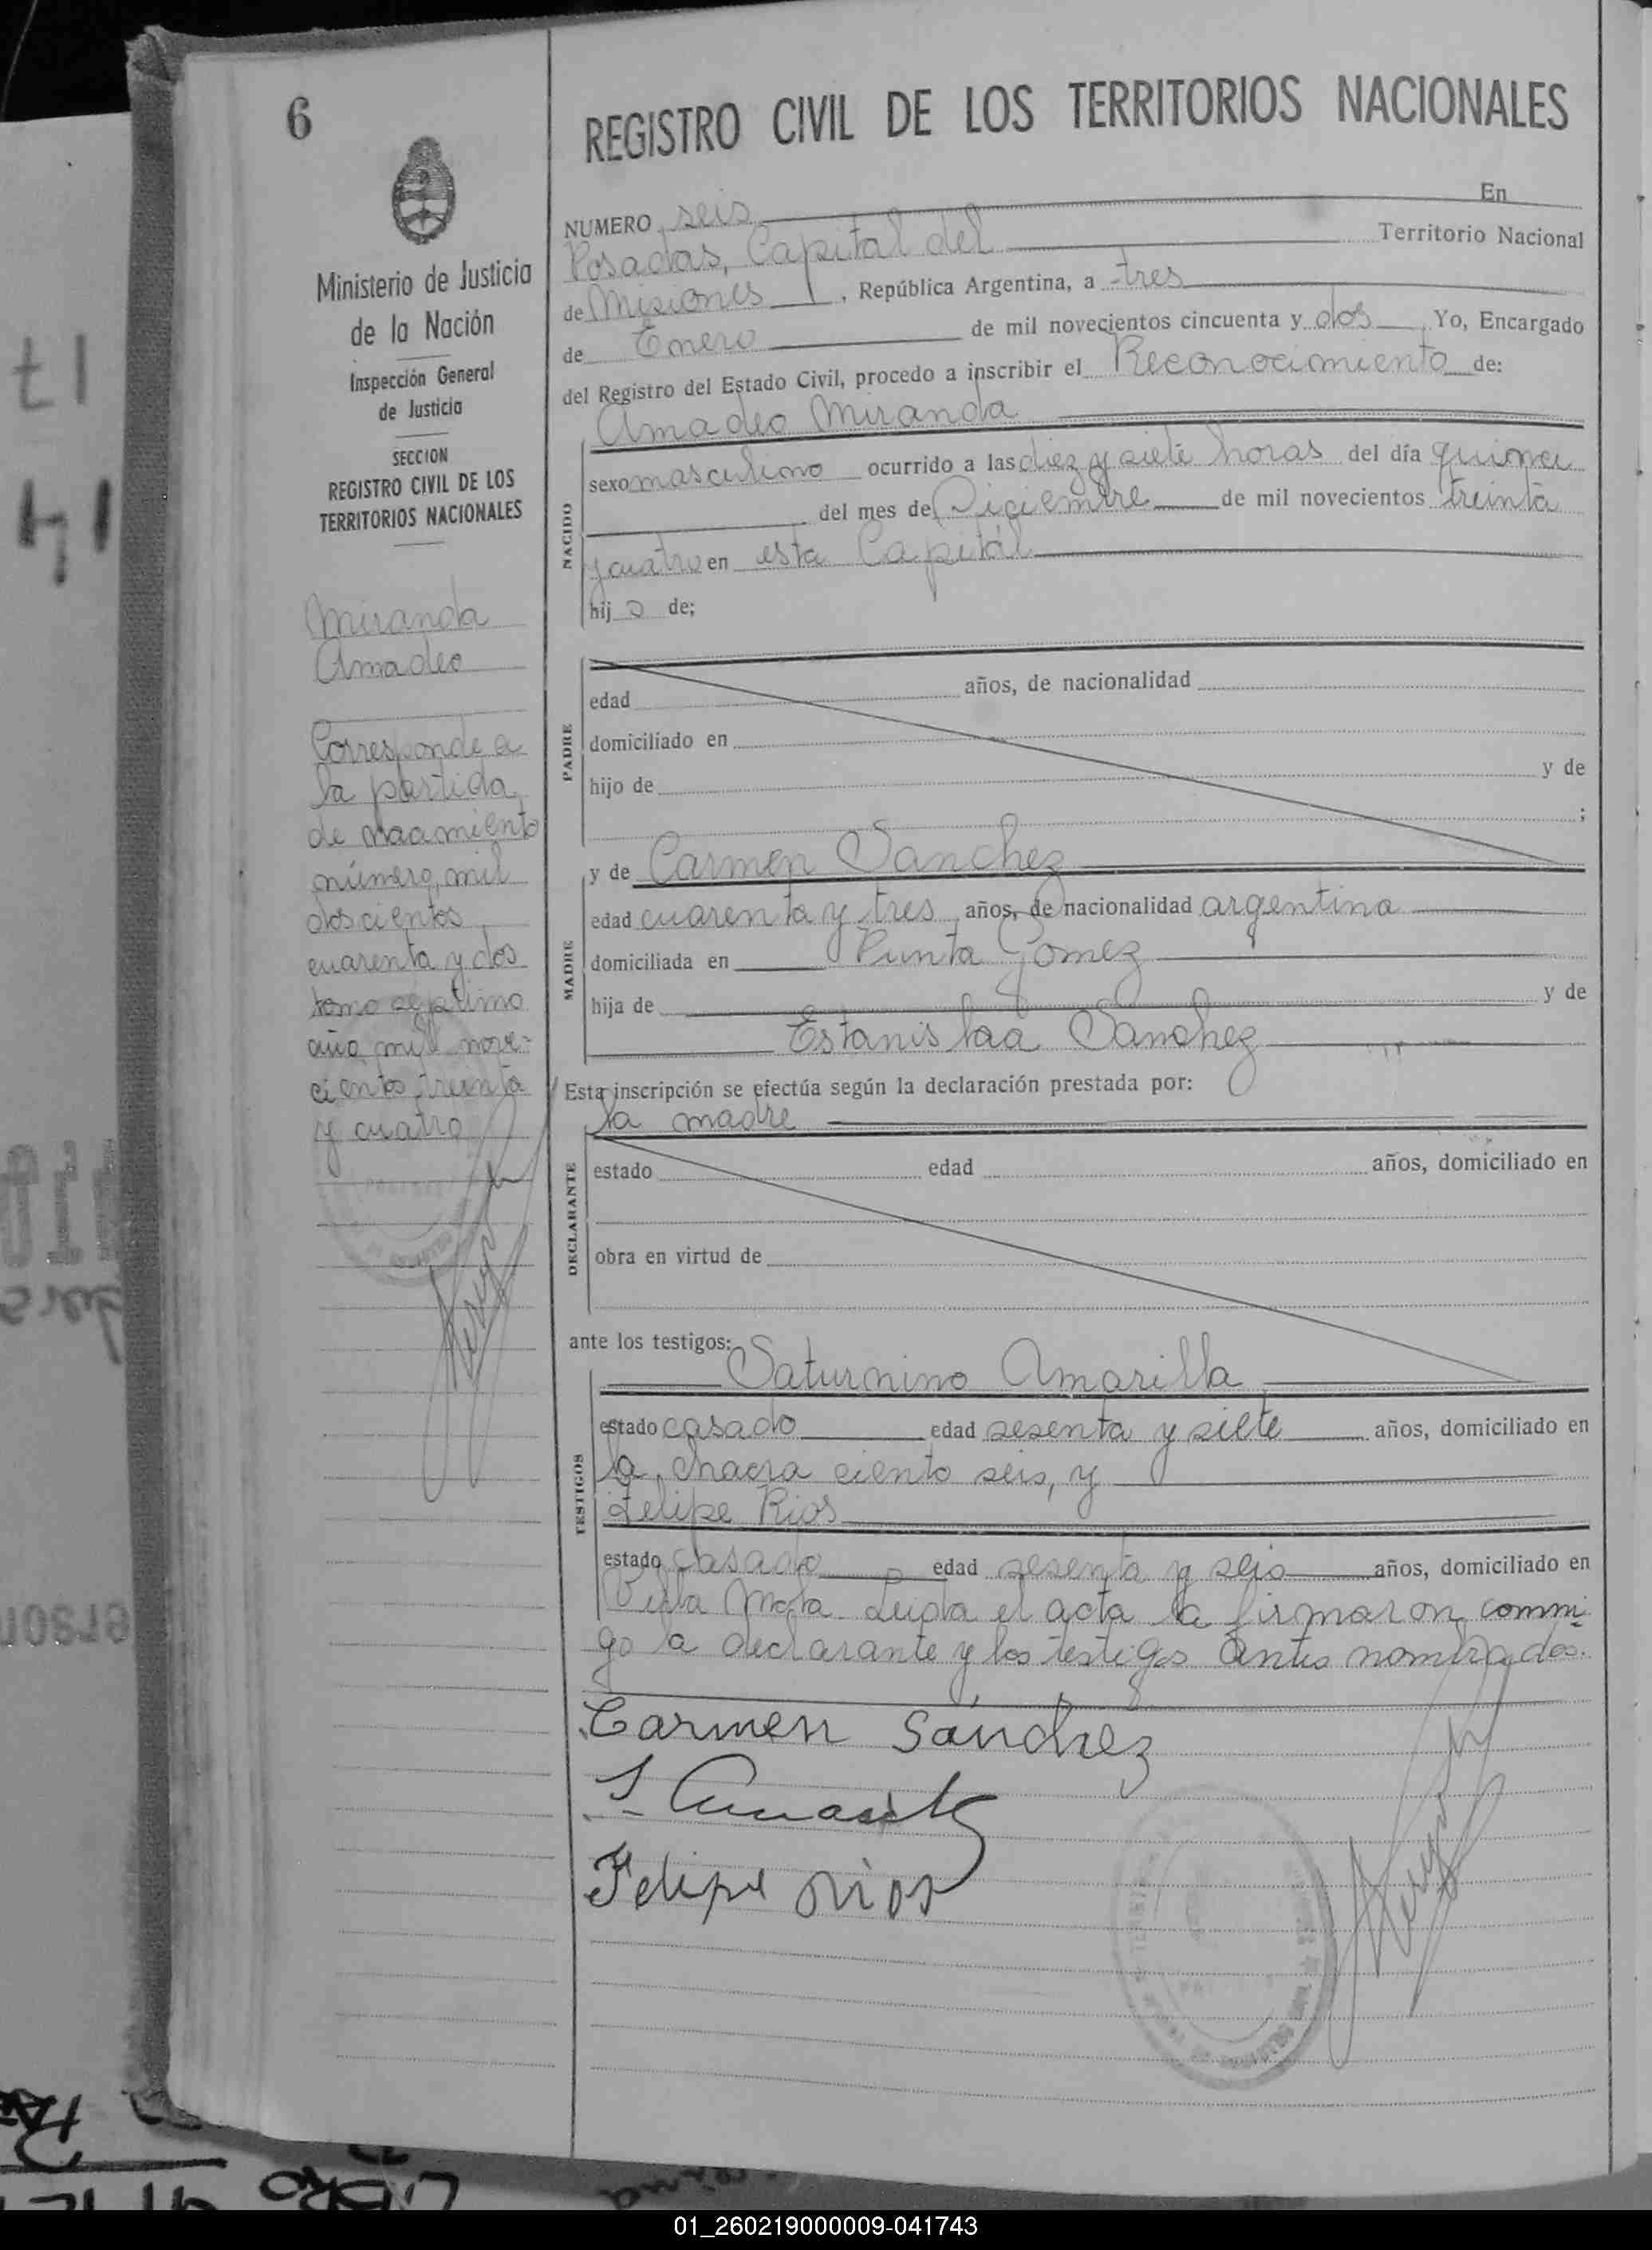 6
REGISTRO CIVIL DE LOS TERRITORIOS NACIONALES
Ministerio de Justicia
de la Nación
Inspección General
de Justicia
SECCION
REGISTRO CIVIL DE LOS
TERRITORIOS NACIONALES
Miranda
Amadeo
Corresponde a
la partida
de nacimiento
número, mil
doscientos
cuarenta y dos
tomo septimo
año mil nove-
cientos treinta
y cuatro
NUMERO seis En
Posadas, Capital del Territorio Nacional
de Misiones, República Argentina, a tres
de Enero de mil novecientos cincuenta y dos Yo, Encargado
del Registro del Estado Civil, procedo a inscribir el Reconocimiento de:
Amadeo Miranda
NACIDO
sexo masculino ocurrido a las diez y siete horas del día quince
del mes de Diciembre de mil novecientos treinta
y cuatro en esta Capital
hij o de;
PADRE
edad años, de nacionalidad
domiciliado en
hijo de y de
;
y de Carmen Sanchez
MADRE
edad cuarenta y tres años, de nacionalidad argentina
domiciliada en Punta Gomez
hija de y de
Estanislaa Sanchez
Esta inscripción se efectúa según la declaración prestada por:
la madre
DECLARANTE
estado edad años, domiciliado en
obra en virtud de
ante los testigos:
Saturnino Amarilla
TESTIGOS
estado casado edad sesenta y siete años, domiciliado en
la chacra ciento seis, y
Felipe Rios
estado casado edad sesenta y seis años, domiciliado en
Villa Mola Leida el acta la firmaron conmi-
go la declarante y los testigos antes nombrados.
Carmen Sánchez
Felipe rios
LIBRO
01_260219000009-041743